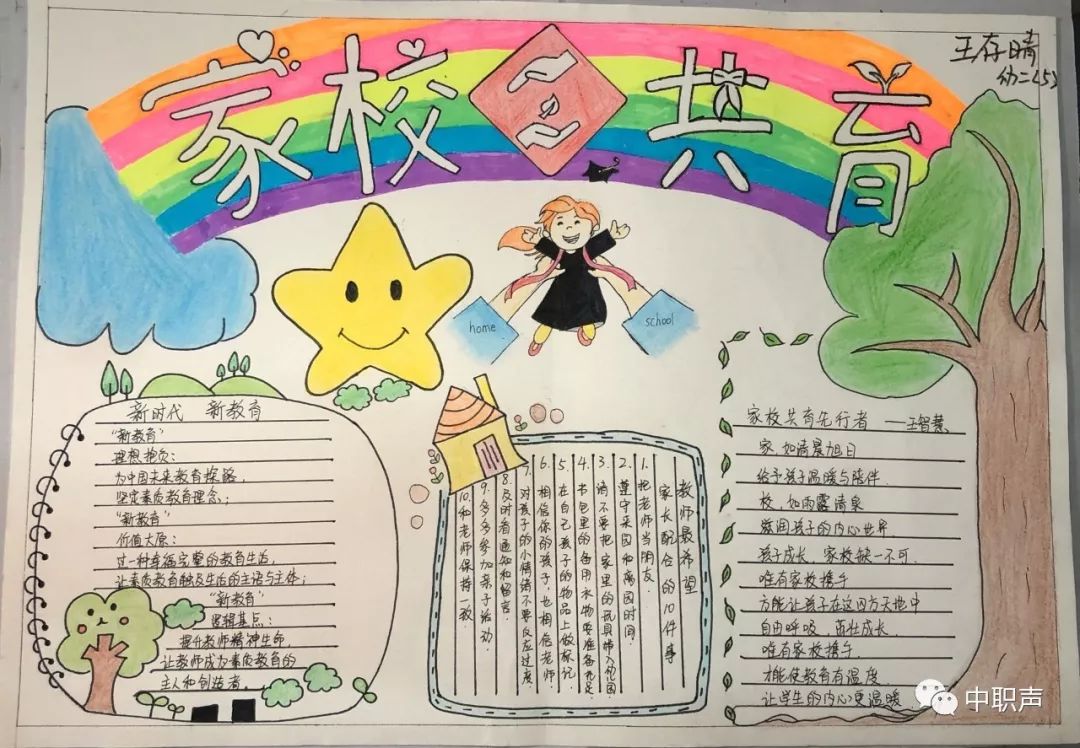 家校共育
王存晴
幼二<5>
home
school
新时代 新教育
“新教育”
理想抱负：
为中国未来教育探路，
坚定素质教育理念；
“新教育”
价值大原：
过一种幸福完整的教育生活，
让素质教育触及生活的主语与主体；
“新教育”
逻辑基点：
提升教师精神生命
让教师成为素质教育的
主人和创造者。
教师最希望
家长配合的10件事
1.把老师当朋友.
2.遵守来园和离园时间.
3.请不要把家里的玩具带入幼儿园.
4.书包里的备用衣物要准备充足
5.在自己孩子的物品上做标记.
6.相信你的孩子,也相信老师
7.对孩子的小情绪不要反应过度.
8.及时看通知和留言.
9.多多参加亲子活动.
10.和老师保持一致
家校共育先行者 ——王智慧
家,如清晨旭日
给予孩子温暖与陪伴
校,如雨露清泉
滋润孩子的内心世界
孩子成长,家校缺一不可.
唯有家校携手
方能让孩子在这四方天地中
自由呼吸,茁壮成长.
唯有家校携手.
才能使教育有温度
让学生的内心更温暖
中职声